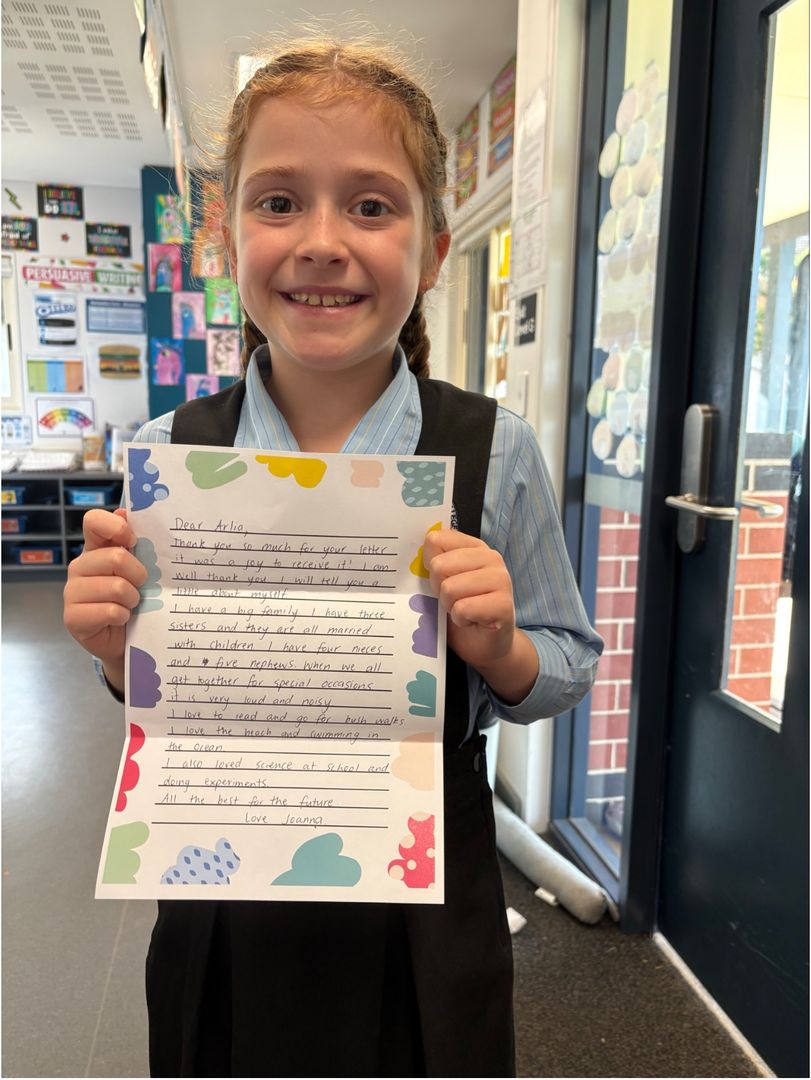 PERSUASIVE WRITING
Dear Arlia,
Thank you so much for your letter
it was a joy to receive it! I am
well thank you. I will tell you a
little about myself.
I have a big family. I have three
sisters and they are all married
with children. I have four nieces
and five nephews. When we all
get together for special occasions
it is very loud and noisy.
I love to read and go for bush walks.
I love the beach and swimming in
the ocean.
I also loved science at school and
doing experiments.
All the best for the future.
Love Joanna